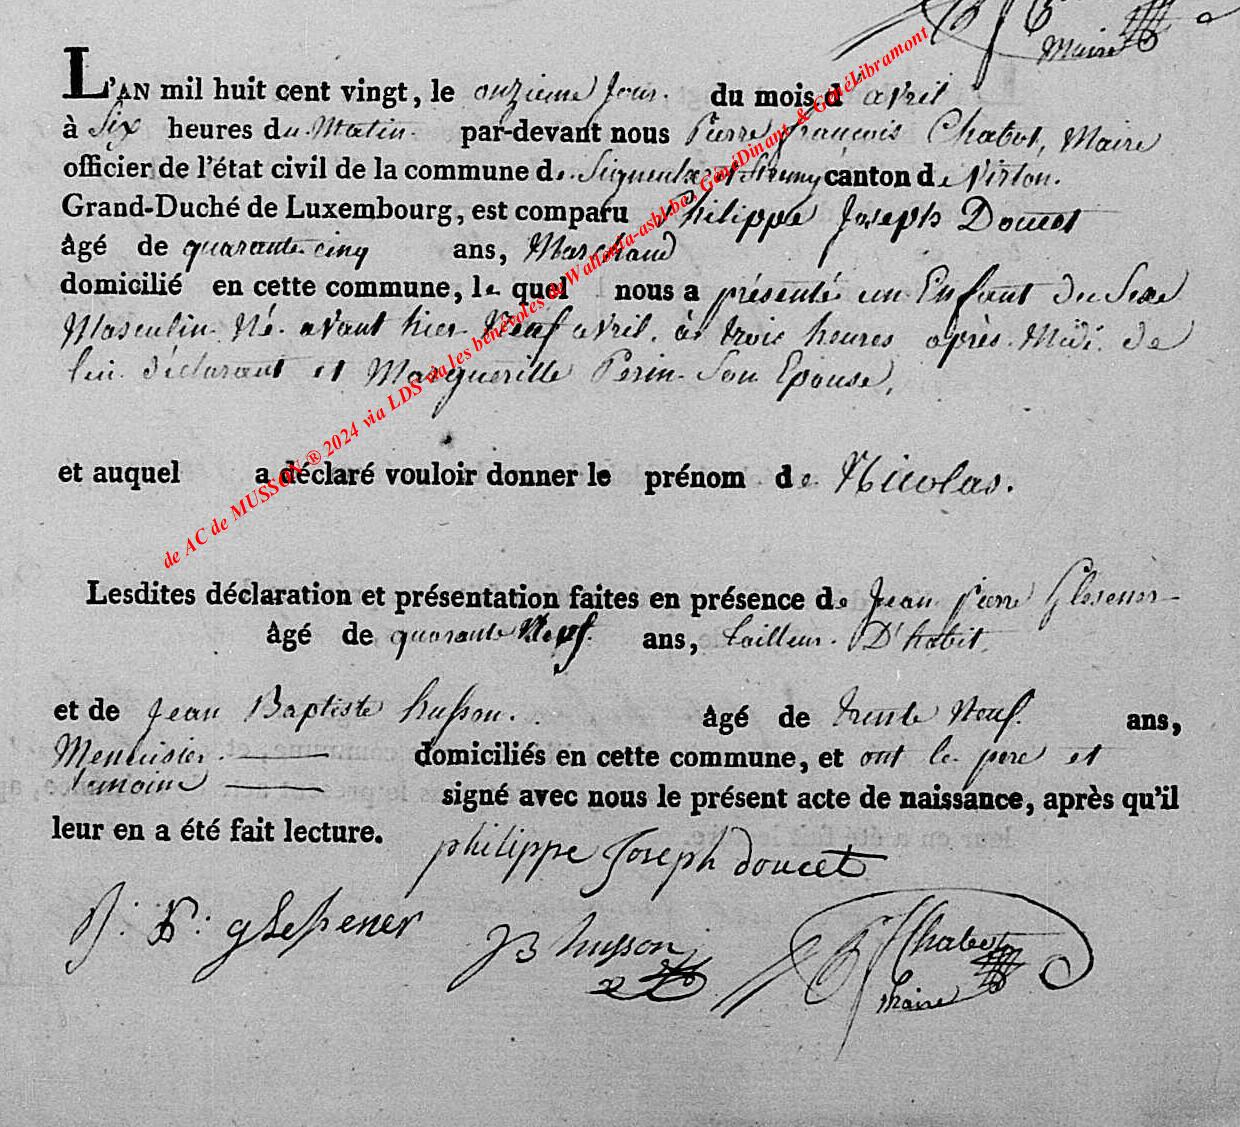 Maire
L'AN mil huit cent vingt, le onzieme jour. du mois d'avril
à Six heures du Matin. par-devant nous Pierre françois Chabot, Maire
officier de l'état civil de la commune de Signeulx canton de Virton.
Grand-Duché de Luxembourg, est comparu Philippe Joseph Doucet
âgé de quarante cinq ans, Marchand
domicilié en cette commune, le quel nous a présenté un Enfant du Sexe
Masculin Né avant hier Neuf avril, à trois heures après Midi. de
lui déclarant et Marguerille Perin Son Epouse,
et auquel a déclaré vouloir donner le prénom de Nicolas.
Lesdites déclaration et présentation faites en présence de Jean pierre Glesener
âgé de quarante Neuf. ans, tailleur D'habit,
et de Jean Baptiste husson. âgé de trente Neuf. ans,
Menuisier domiciliés en cette commune, et ont le pere et
temoins signé avec nous le présent acte de naissance, après qu'il
leur en a été fait lecture.
philippe Joseph doucet
J: P: glesener
JB husson
PF Chabot
Maire
de AC de MUSSON ® 2024 via LDS via les bénévoles de Wallonia-asbl.be, GénéDinant & GénéLibramont